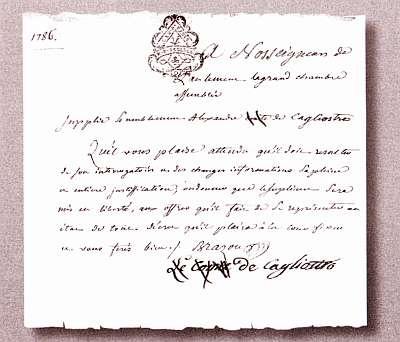 1786.
A Nosseigneurs de
Parlement la grand chambre
assemblée
Supplie humblement Alexandre comte de Cagliostro
Qu'il vous plaise attendu qu'il doit resulter
de son interrogatoire et des charges informations sa pleine
et entiere justification, ordonner que le supliant sera
mis en liberté, aux offres qu'il fait de se représenter en
état de tout décret qu'il plaira à la cour et
vous ferés bien
Le Comte de Cagliostro